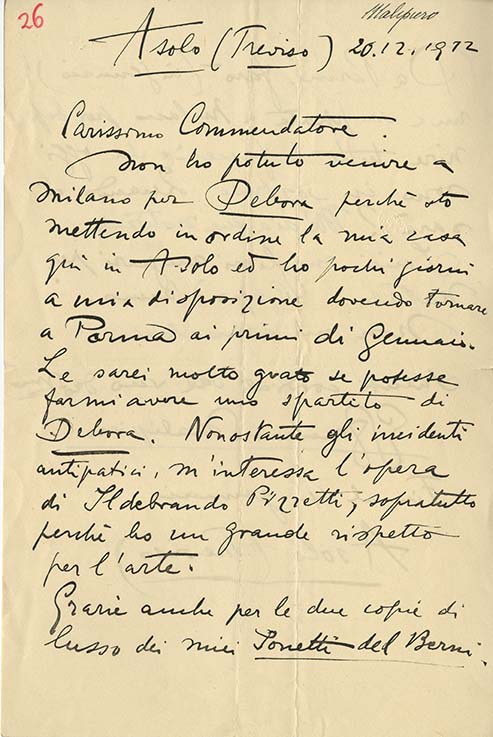 26
Malipiero
Asolo (Treviso) 20.12.1922
Carissimo Commendatore.
Non ho potuto venire a
Milano per Debora perchè sto
mettendo in ordine la mia casa
qui in Asolo ed ho pochi giorni
a mia disposizione dovendo tornare
a Parma ai primi di Gennaio.
Le sarei molto grato se potesse
farmi avere uno spartito di
Debora. Nonostante gli incidenti
antipatici, m'interessa l'opera
di Ildebrando Pizzetti, sopratutto
perchè ho un grande rispetto
per l'arte.
Grazie anche per le due copie di
lusso dei miei Sonetti del Berni.